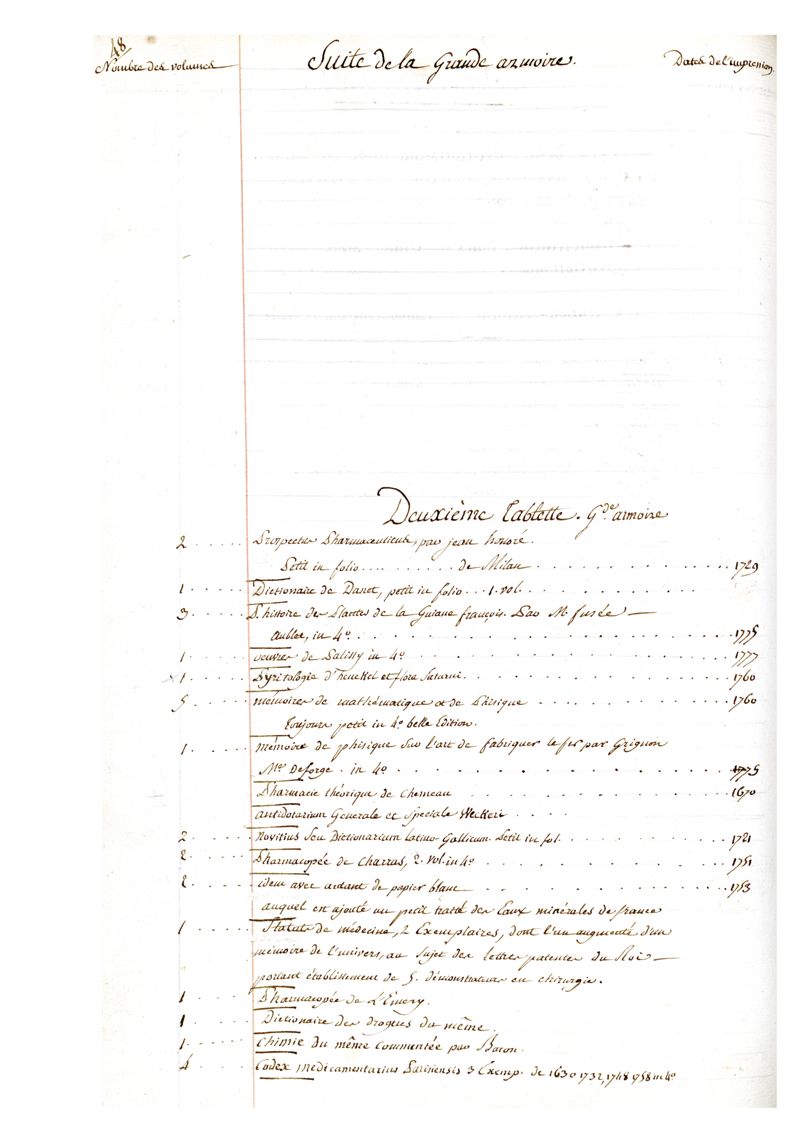 48
Nombre des volumes Suite de la Grande armoire. Dates de l'impression
Deuxième Tablette. Gde armoire
2 . . . . . Prospectus Pharmaceuticus, par jean honoré.
Petit in folio . . . . . . . . de Milan . . . . . . . . . . . 1729
1 . . . . . Dictionaire de Danet, petit in folio . . . 1. vol. . . . . . . . .
3 . . . . . L'histoire des Plantes de la Guiane françois. Par M. fusée —
Aublet, in 4o. . . . . . . . . . . . . . . . . 1775
1 . . . . . oeuvres de Palissy in 4o . . . . . . . . . . . . . 1777
1 . . . . . Pyritologie d'henckel et flora Saturni . . . . . . . . . . . 1760
5 . . . . . mémoires de mathématique et de Phisique . . . . . . . . . 1760
Toujours petit in 4o belle Edition.
1 . . . . . mémoire de phisique sur l'art de fabriquer le fer par Grignon
Mtre Deforge . in 4o . . . . . . . . . . . . . . . 1775
Pharmacie théorique de Chesneau . . . . . . . . . . . . 1670
antidotarium Generale et Speciale Weckeri . . . . .
2 . . . . . Novitius Seu Dictionarium latino Gallicum Petit in fol. . . . . . . . 1721
2 . . . . . Pharmacopée de Charras, 2. vol. in 4o . . . . . . . . . . 1751
2 . . . . . idem avec autant de papier blanc . . . . . . . . . . . 1753
auquel est ajouté un petit traité des Eaux minérales de france
1 . . . . . Statuts de médecine, 2 Exemplaires, dont l'un augmenté d'un
mémoire de l'univers, au sujet des lettres patentes du Roi —
portant établissement de 5. démonstrateurs en chirurgie.
1 . . . . . Pharmacopée de L'Emery.
1 . . . . . Dictionaire des drogues du même.
1 . . . . . Chimie du même commentée par Baron.
4 . . . . . Codex medicamentarius Parisiensis 3 Exemp. de 1630 1732, 1748 758 in 4o